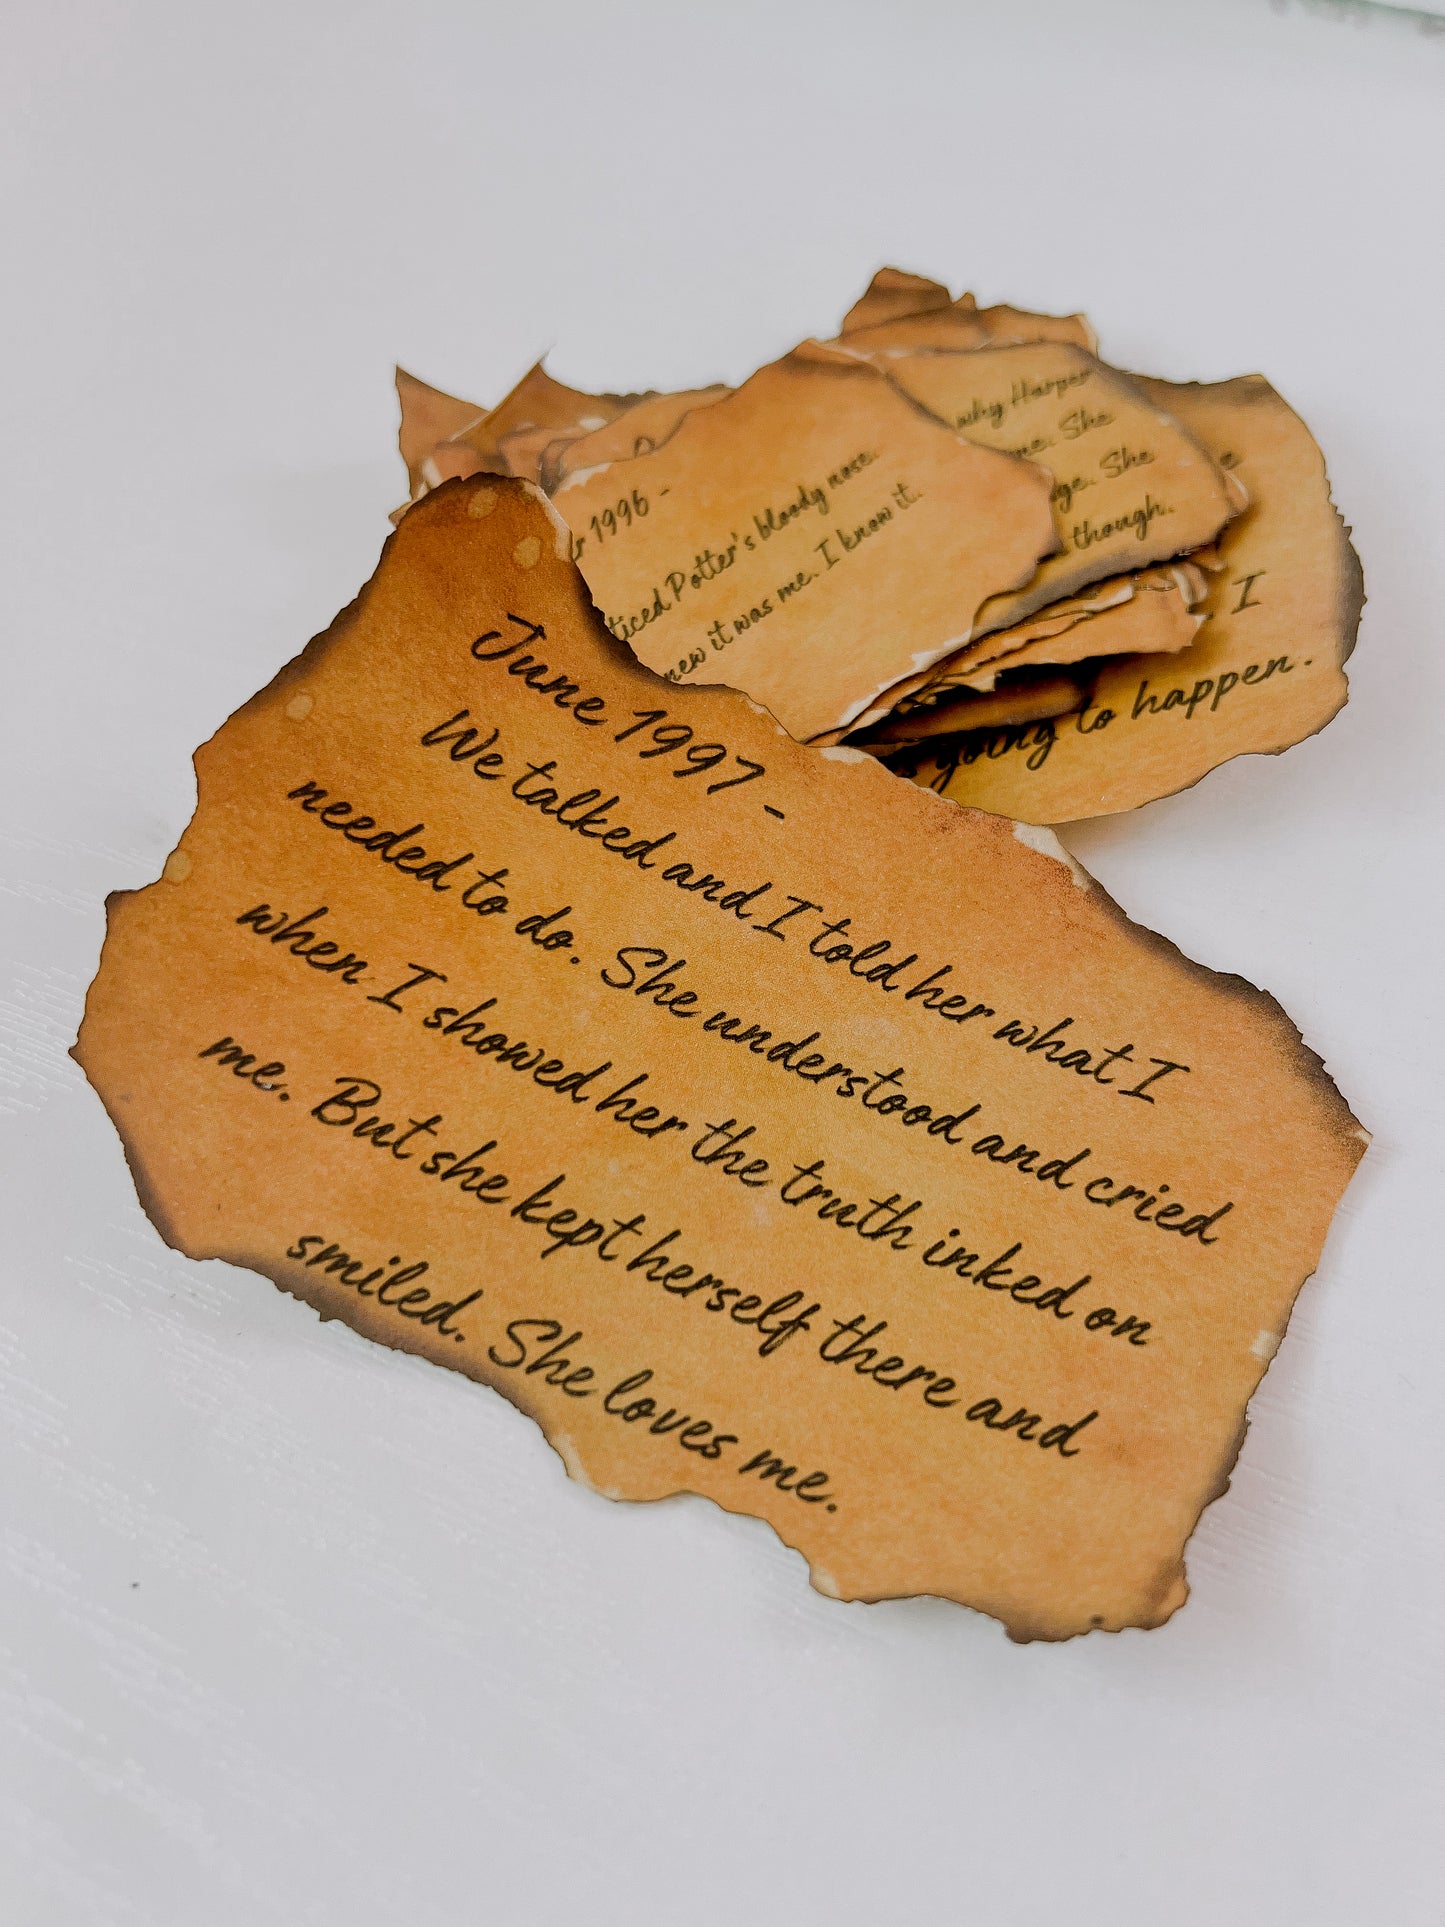 June 1997 -
We talked and I told her what I
needed to do. She understood and cried
when I showed her the truth inked on
me. But she kept herself there and
smiled. She loves me.
1996 -
Potter's bloody nose.
it was me. I know it.
why Harper
She
She
though.
I
going to happen.